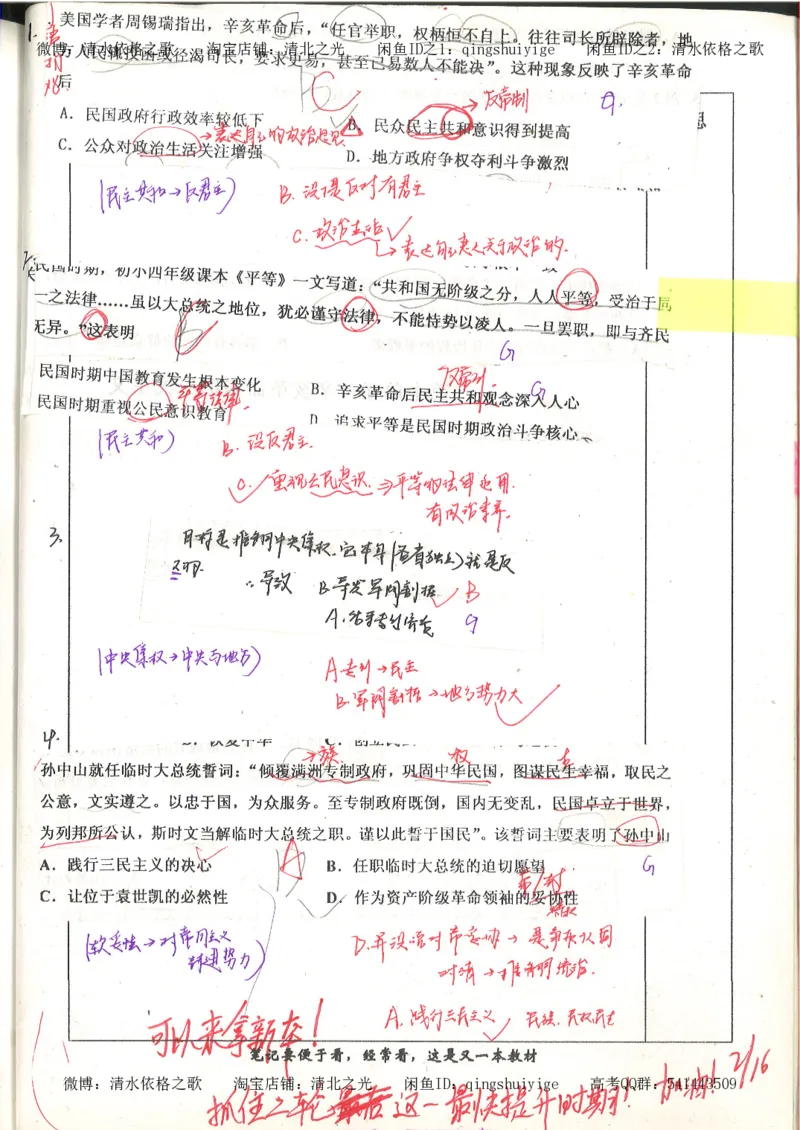 1.
美国学者周锡瑞指出，辛亥革命后，“任官举职，权柄恒不自上。往往司长所辟除者，地
微博：清水依格之歌 淘宝店铺：清北之光 闲鱼ID之1：qingshuiyige 闲鱼ID之2：清水依格之歌
方人民辄投函或径渴司长，要求更易，甚至已易数人不能决”。这种现象反映了辛亥革命
后
C
→反帝制
G.
A．民国政府行政效率较低下
B．民众民主共和意识得到提高
→表达自己的政治意见
C．公众对政治生活关注增强
D．地方政府争权夺利斗争激烈
(民主共和→反君主)
B. 没提反对有君主
C. 政治生活✓
→表达自己意见关于政治的.
民国时期，初小四年级课本《平等》一文写道：“共和国无阶级之分，人人平等，受治于同
一之法律……虽以大总统之地位，犹必谨守法律，不能恃势以凌人。一旦罢职，即与齐民
无异。”这表明
G
民国时期中国教育发生根本变化
反帝制
B．辛亥革命后民主共和观念深入人心
G
平等法律
民国时期重视公民意识教育
D．追求平等是民国时期政治斗争核心
(民主共和)
B. 没反君主.
C. 重视公民意识⇒平等的法律运用.
有政治素养.
3.
目标是推翻中央集权.
B
G
(中央集权→中央与地方)
A 专制→民主
B. 军阀割据→地方势力大
4.
→族
权
孙中山就任临时大总统誓词：“倾覆满洲专制政府，巩固中华民国，图谋民生幸福，取民之
公意，文实遵之。以忠于国，为众服务。至专制政府既倒，国内无变乱，民国卓立于世界，
为列邦所公认，斯时文当解临时大总统之职。谨以此誓于国民”。该誓词主要表明了孙中山
A．践行三民主义的决心
A
B．任职临时大总统的迫切愿望
G
C．让位于袁世凯的必然性
帝/封
D．作为资产阶级革命领袖的妥协性
(软妥协→对帝国主义
封建势力)
D. 并没有对帝妥协→是争取认同
对清→推翻统治.
A. 践行三民主义✓ 民族. 民权 民生
可以来拿新本!
笔记要便于看，经常看，这是又一本教材
微博：清水依格之歌 淘宝店铺：清北之光 闲鱼ID：qingshuiyige 高考QQ群：541443509
加油! 2/16
抓住二轮这一最快提升时期!